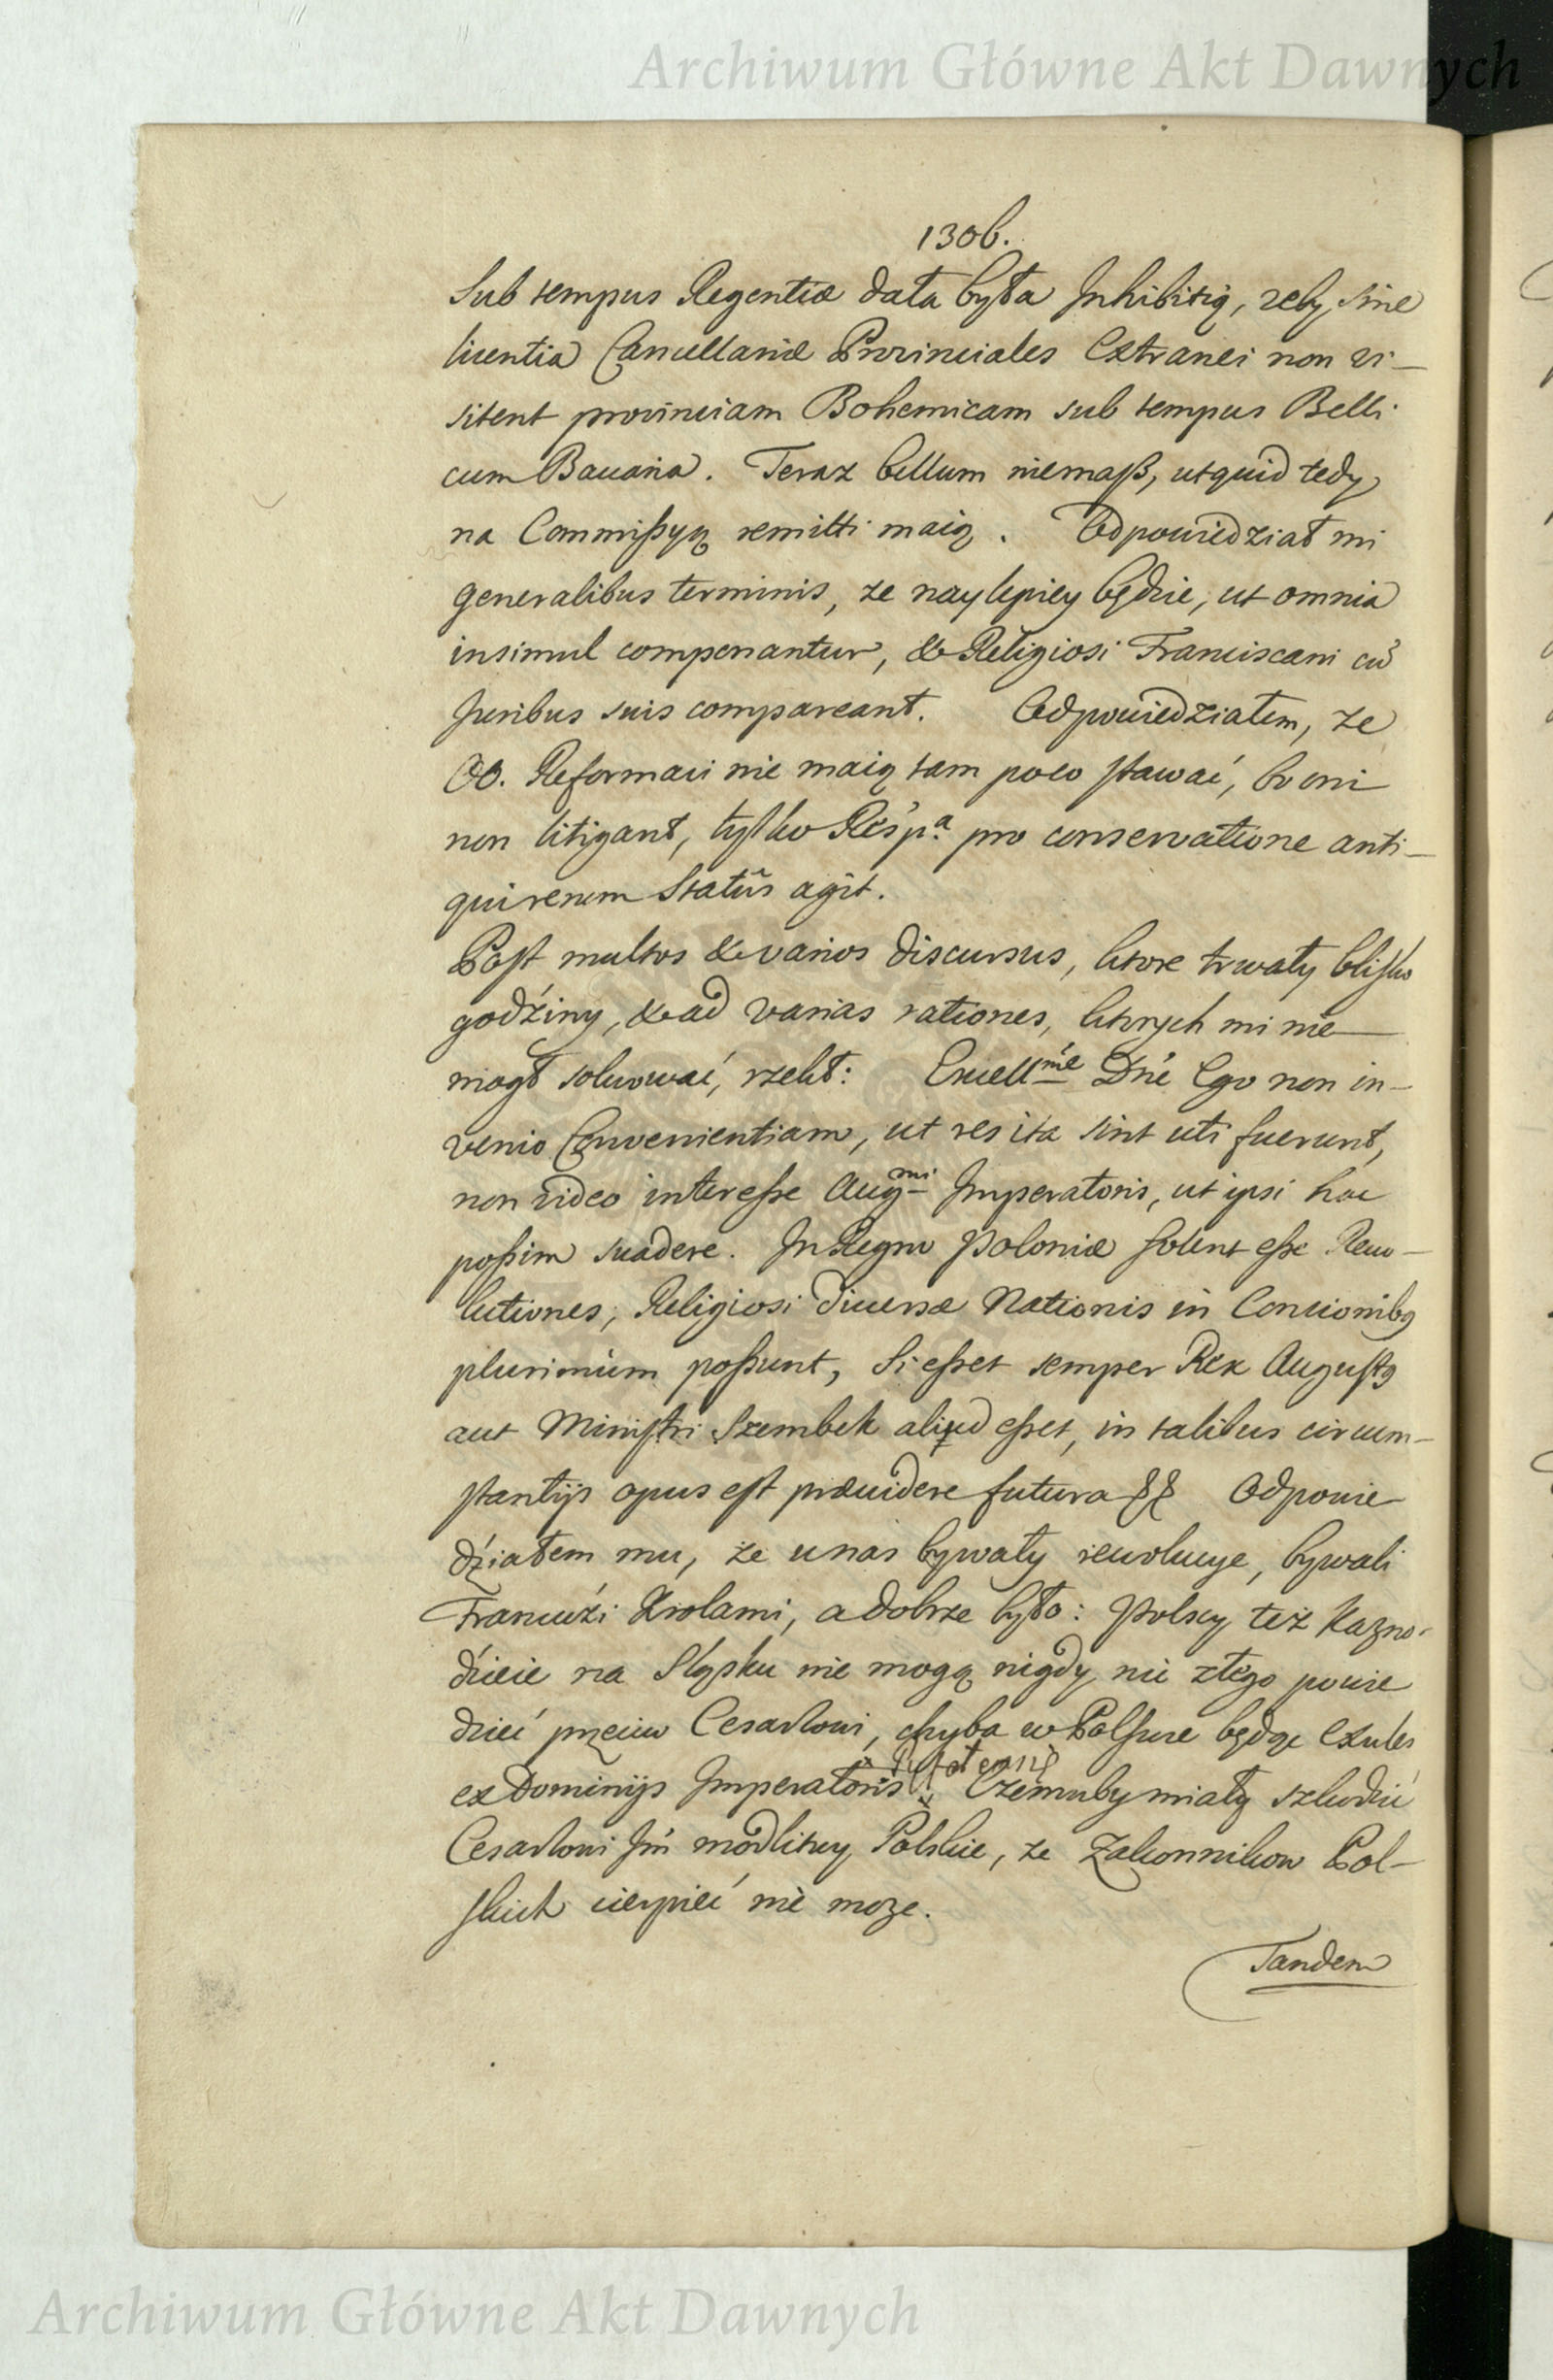 Archiwum Główne Akt Dawnych
1306.
Sub tempus Regentiæ data była Inhibitią, zeby sine
licentia Cancellariæ Provinciales Extranei non vi-
sitent provinciam Bohemicam sub tempus Belli
cum Bavaria. Teraz bellum niemasz, utquid tedy
na Commissyą remitti maią. Odpowiedział mi
generalibus terminis, ze naylepiey będzie, ut omnia
insimul componantur, & Religiosi Franciscani cū
Juribus suis compareant. Odpowiedziałem, ze
OO. Reformaci nie maią tam poco stawać, bo oni
non litigant, tylko Resp.a pro conservatione anti-
qui rerum Statûs agit.
Post multos & varios discursus, ktore trwały blisko
godźiny, & ad varias rationes, ktorych mi nie
mogł solwować, rzekł: Excellme Dne Ego non in-
venio Convenientiam, ut res ita sint uti fuerunt,
non video interesse Augmi Imperatoris, ut ipsi hoc
possim suadere. In Regno Poloniæ solent esse Revo-
lutiones, Religiosi diversæ Nationis in Concionibq
plurimùm possunt, Si esset semper Rex Augustq
aut Ministri Szembek aliud esset, in talibus circum-
stantijs opus est prævidere futura Odpowie-
dźiałem mu, że u nas bywały rewolucye, bywali
Francuźi Krolami, a dobrze było: Polscy też Kazno-
dzieie na Sląsku nie mogą nigdy nic złego powie
dzieć przeciw Cesarzowi, chyba w Polszcze będąc Exules
ex Dominijs Imperatoris. Czemuby miały szkodzić
Cesarzowi Jm modlitwy Polskie, ze Zakonnikow Pol-
skich cierpieć nie moze.
Tandem
Archiwum Główne Akt Dawnych